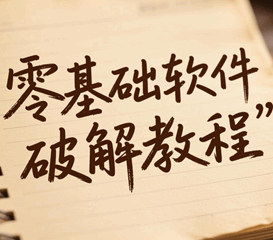 零基础软件
破解教程”